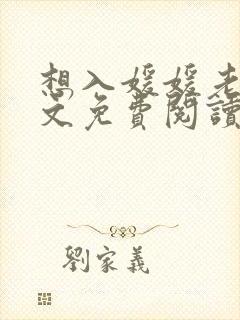 想入媛媛老
文免費閱讀
劉家義